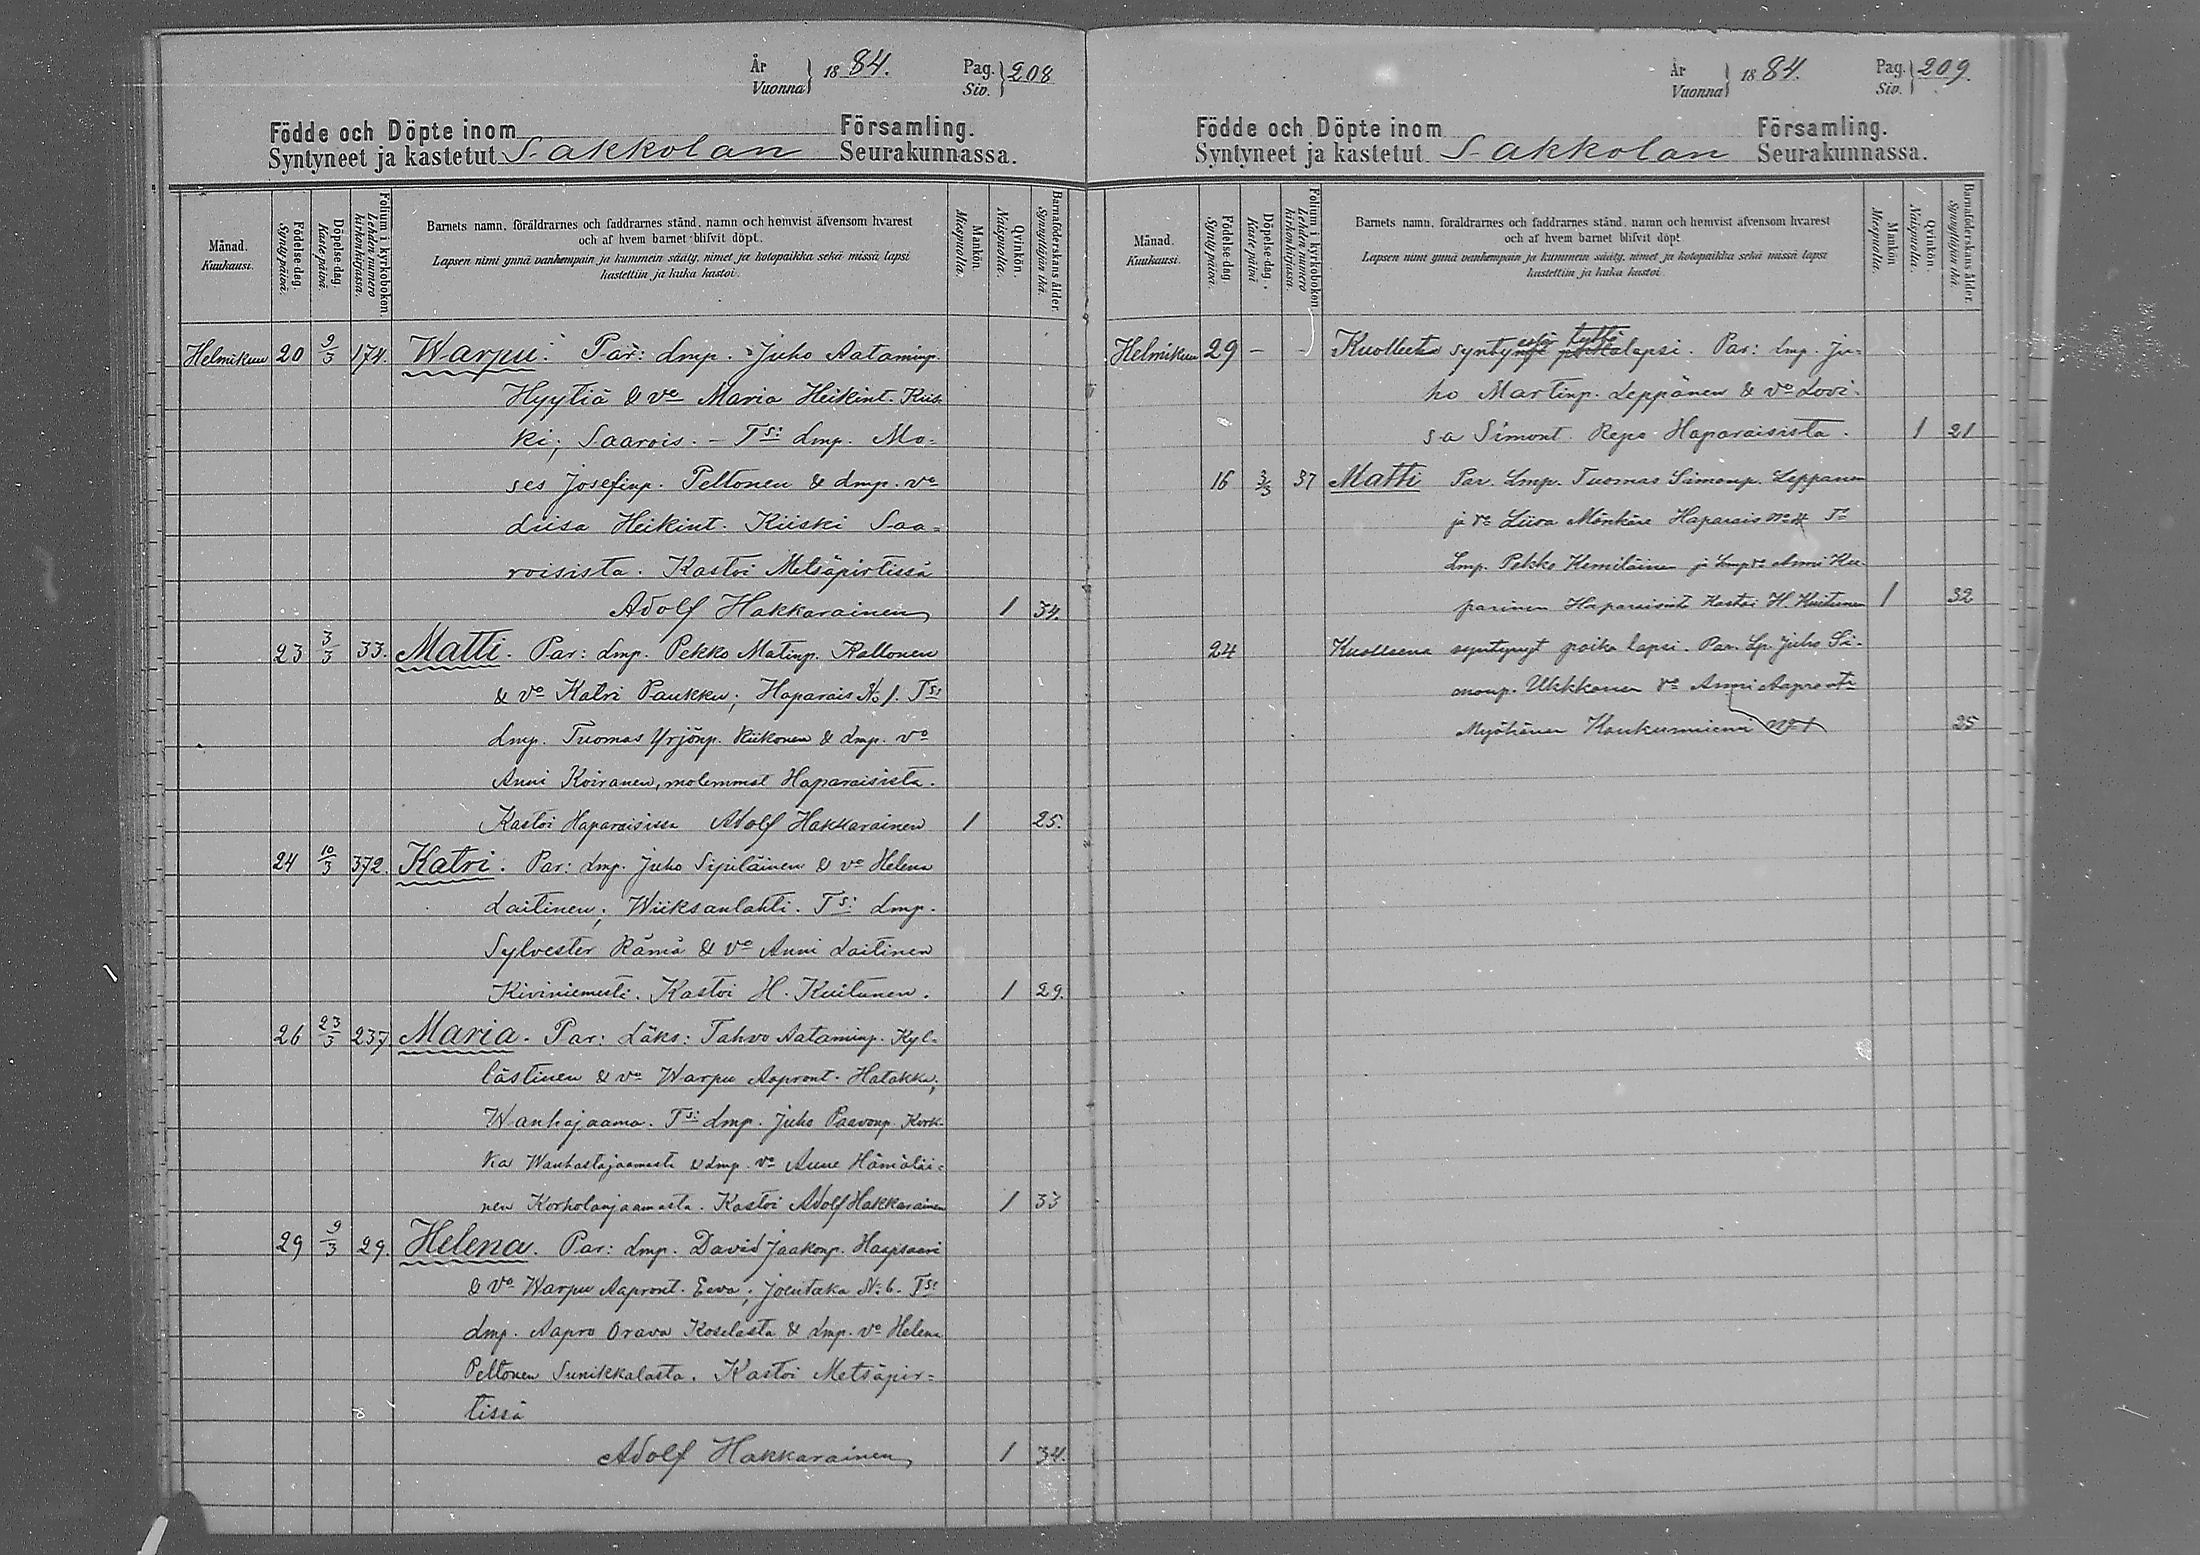 År
Vuonna } 1884. Pag.
Siv. } 208
Födde och Döpte inom Församling.
Syntyneet ja kastetut Sakkolan Seurakunnassa.
Månad.
Kuukausi.
Födelse-dag.
Syntypäivä.
Döpelse-dag.
Kastepäivä.
Folium i kyrkobokon.
Lehden numero
kirkonkirjassa.
Barnets namn, föräldrarnes och faddrarnes stånd, namn och hemvist äfvensom hvarest
och af hvem barnet blifvit döpt.
Lapsen nimi ynnä vanhempain ja kummein sääty, nimet ja kotopaikka sekä missä lapsi
kastettiin ja kuka kastoi.
Mankön.
Miespuolia.
Qvinkön.
Naispuolia.
Barnaföderskans ålder.
Synnyttäjän ikä.
Helmikuu 20 9/3 174. Warpu. Par: Lmp. Juho Aataminp.
Hyytiä & vo Maria Heikint. Kiis-
ki; Saarois. - Tsi Lmp. Mo-
ses Josefinp. Peltonen & Lmp. vo
Liisa Heikint. Kiiski Saa-
roisista. Kastoi Metsäpirtissä
Adolf Hakkarainen 1 34.
23 3/3 33. Matti. Par: Lmp. Pekko Matinp. Kaltonen
& vo Katri Paukku; Haparais No 1. Tsi
Lmp. Tuomas Yrjönp. Kiikonen & Lmp. vo
Anni Koiranen, molemmat Haparaisista.
Kastoi Haparaisissa Adolf Hakkarainen 1 25.
24 10/3 372. Katri. Par: Lmp. Juho Sipiläinen & vo Helena
Laitinen; Wiiksanlahti. Tsi Lmp.
Sylvester Rämä & vo Anni Laitinen
Kiviniemestä. Kastoi H. Kuitunen. 1 29.
26 23/3 237. Maria. Par: Läks: Tahvo Aataminp. Kyl-
lästinen & vo Warpu Aapront. Hatakka;
Wanhajaama. Tsi Lmp. Juho Paavonp. Kork-
ka Wanhastajaamasta & Lmp. vo Anne Hämäläi-
nen Korholanjaamasta. Kastoi Adolf Hakkarainen 1 33
29 9/3 29. Helena. Par: Lmp. David Jaakonp. Haapsaari
& vo Warpu Aapront. Eeva; Joentaka No 6. Tsi
Lmp. Aapro Orava Koselasta & Lmp. vo Helena
Peltonen Sunikkalasta. Kastoi Metsäpir-
tissä
Adolf Hakkarainen 1 34.
År
Vuonna } 1884. Pag.
Siv. } 209.
Födde och Döpte inom Församling.
Syntyneet ja kastetut Sakkolan Seurakunnassa.
Månad.
Kuukausi.
Födelse-dag.
Syntypäivä.
Döpelse-dag.
Kastepäivä
Folium i kyrkobokon.
Lehden numero
kirkonkirjassa.
Barnets namn, föräldrarnes och faddrarnes stånd, namn och hemvist äfvensom hvarest
och af hvem barnet blifvit döpt.
Lapsen nimi ynnä vanhempain ja kummein sääty, nimet ja kotopaikka sekä missä lapsi
kastettiin ja kuka kastoi.
Mankön
Miespuolia.
Qvinkön.
Naispuolia.
Barnaföderskans ålder.
Synnyttäjän ikä.
tyttö
Helmikuu 29 - - poikalapsi. Par: Lmp. Ju-
ho Martinp. Leppänen & vo Lovi-
sa Simont. Repo Haparaisista. 1 21
16 3/3 37 Matti Par. Lmp. Tuomas Simonp. Leppänen
ja vo Liisa Mönkäre Haparais No 4 To
Lmp. Pekko Hemiläinen ja Lmp vo Anni Ku-
parinen Haparaisista Kastoi H. Kuitunen 1 32
24 Kuolleena syntynyt poika lapsi. Par. Lp. Juho Si-
monp. Ukkonen vo Anni Aapront.
Myöhänen Haukunniemi No 1 25